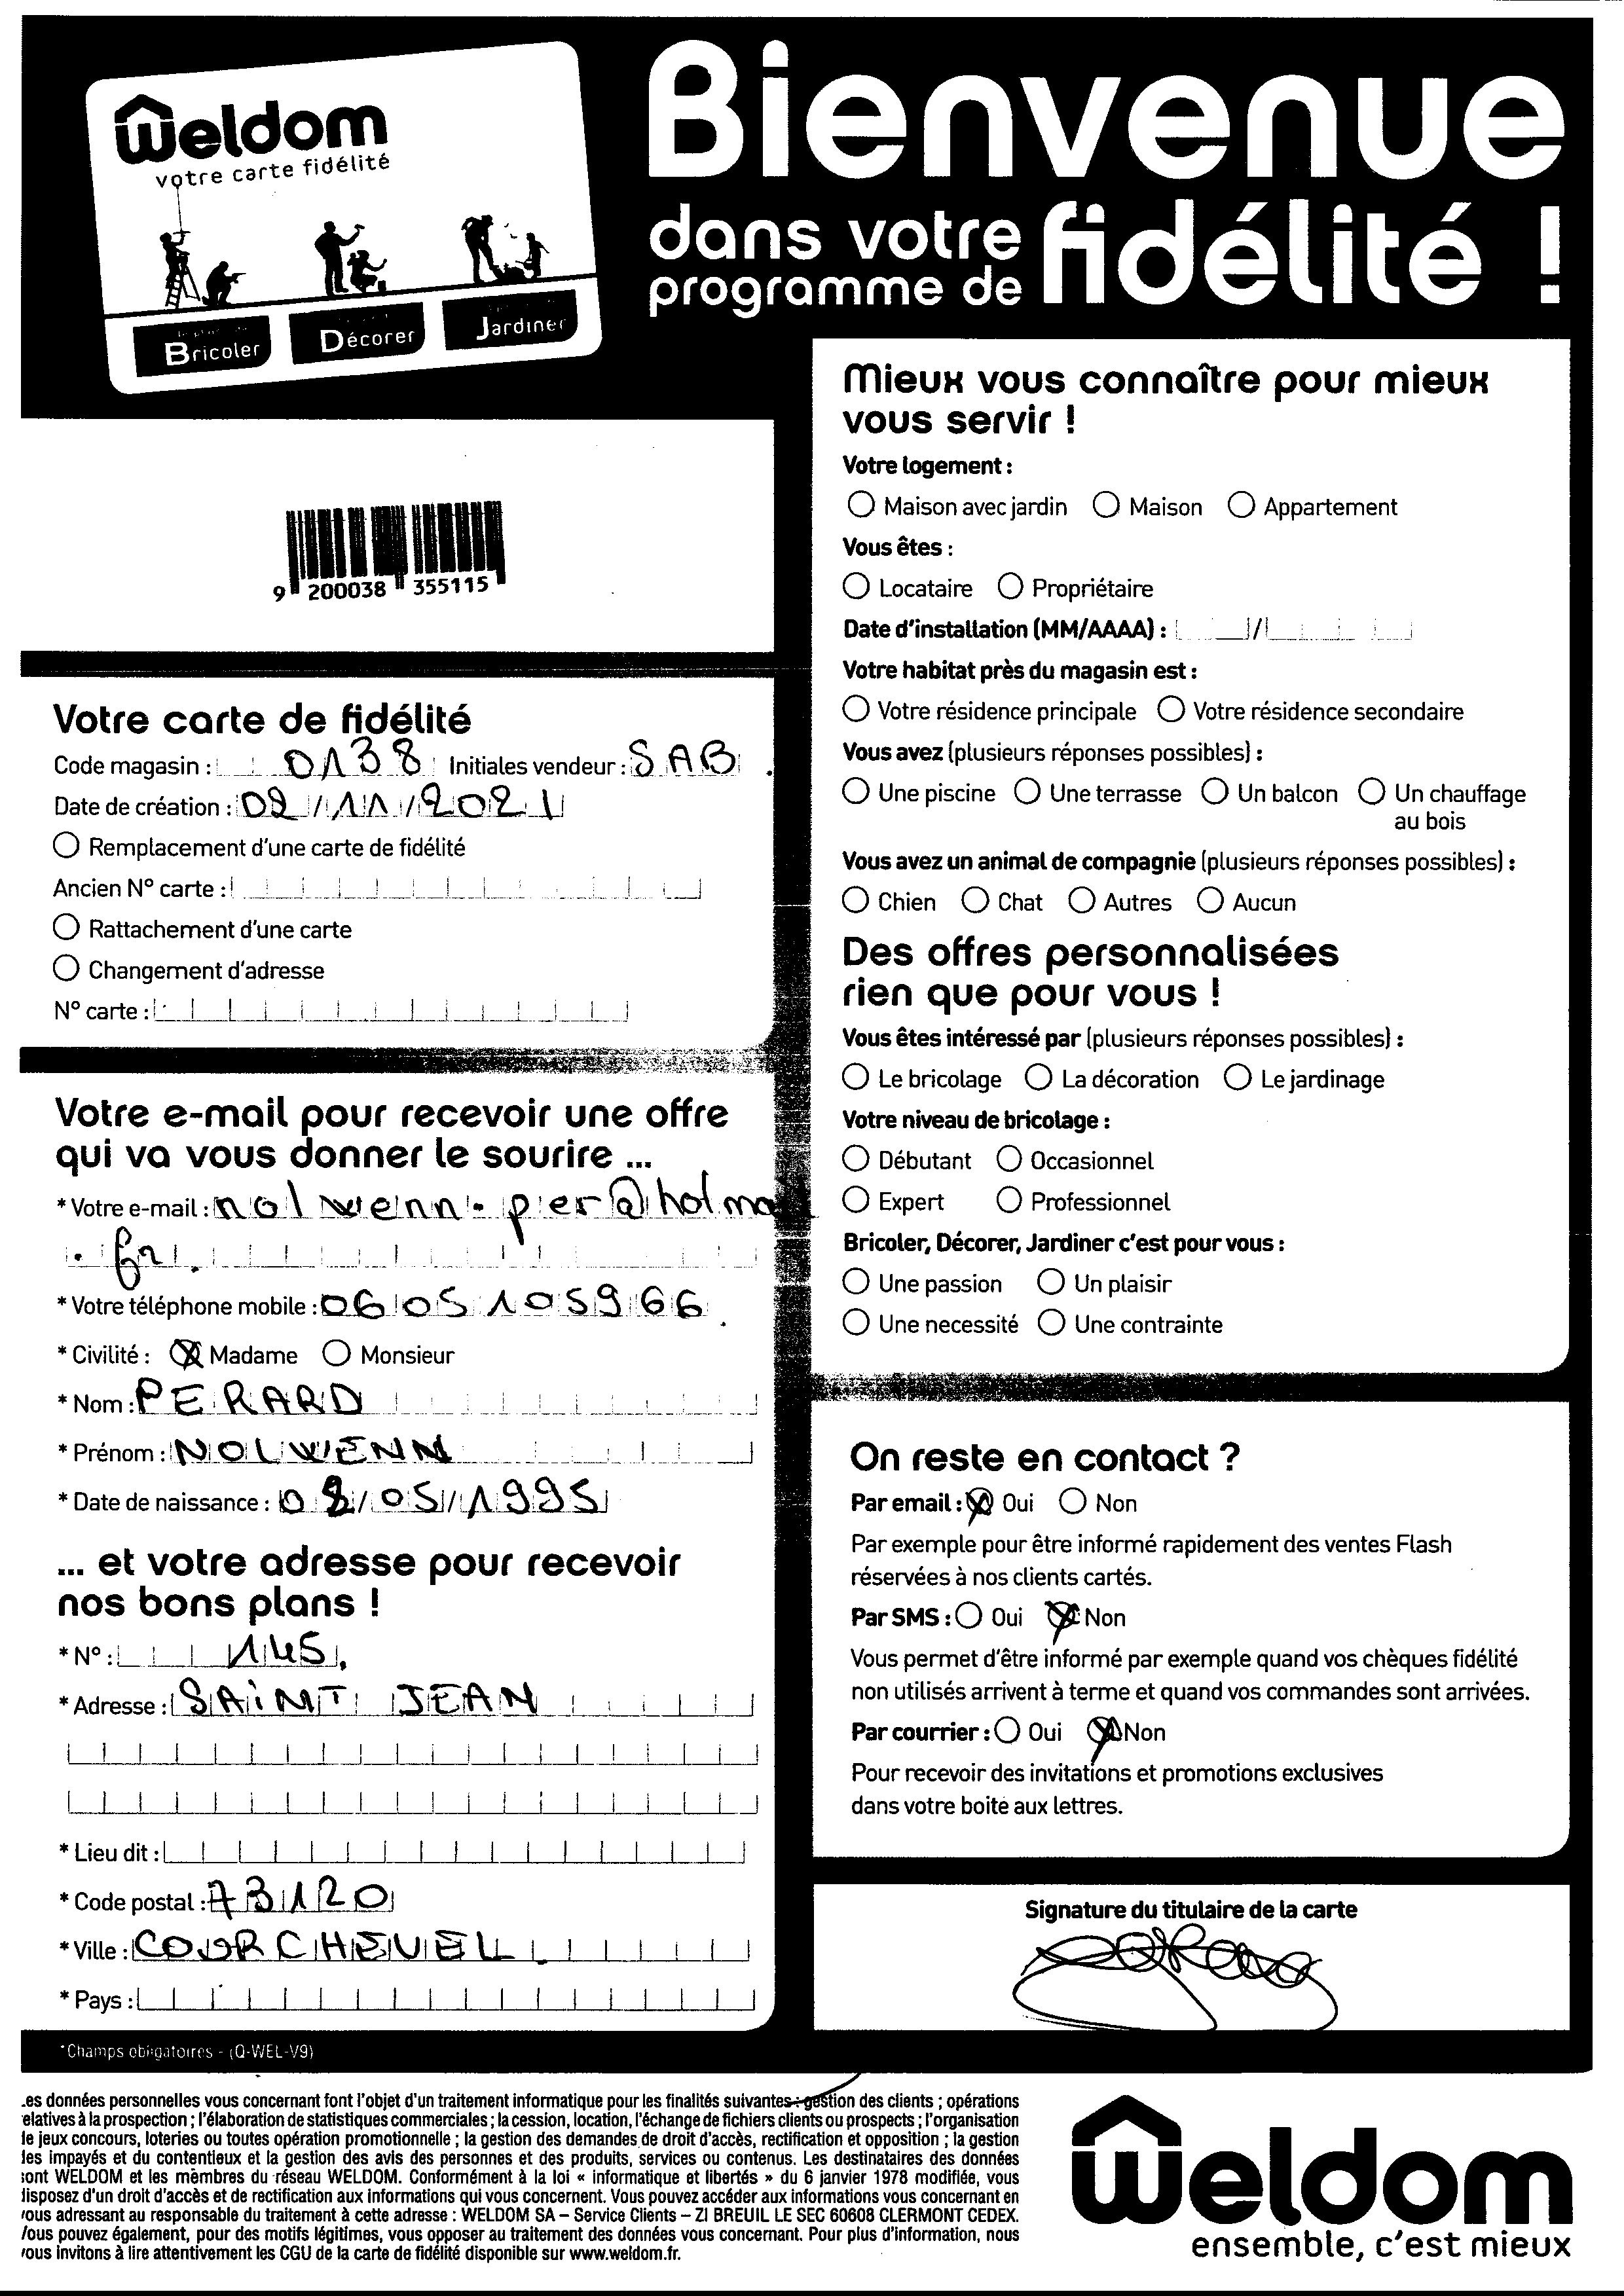 Weldom
votre carte fidélité
Bricoler
Décorer
Jardiner
Bienvenue
dans votre
programme de
fidélité !
9 200038 355115
Votre carte de fidélité
Code magasin : 0138 Initiales vendeur : SAB
Date de création : 02/11/2021
Remplacement d'une carte de fidélité
Ancien N° carte :
Rattachement d'une carte
Changement d'adresse
N° carte :
Votre e-mail pour recevoir une offre
qui va vous donner le sourire ...
* Votre e-mail : nolwenn.per@hotma
.fr
* Votre téléphone mobile : 0605105966
* Civilité : X Madame Monsieur
* Nom : PERARD
* Prénom : NOLWENN
* Date de naissance : 08/05/1995
... et votre adresse pour recevoir
nos bons plans !
* N° : 145
* Adresse : SAINT JEAN
* Lieu dit :
* Code postal : 73120
* Ville : COURCHEVEL
* Pays :
*Champs obligatoires - (Q-WEL-V9)
Mieux vous connaître pour mieux
vous servir !
Votre logement :
Maison avec jardin Maison Appartement
Vous êtes :
Locataire Propriétaire
Date d'installation (MM/AAAA) : /
Votre habitat près du magasin est :
Votre résidence principale Votre résidence secondaire
Vous avez (plusieurs réponses possibles) :
Une piscine Une terrasse Un balcon Un chauffage
au bois
Vous avez un animal de compagnie (plusieurs réponses possibles) :
Chien Chat Autres Aucun
Des offres personnalisées
rien que pour vous !
Vous êtes intéressé par (plusieurs réponses possibles) :
Le bricolage La décoration Le jardinage
Votre niveau de bricolage :
Débutant Occasionnel
Expert Professionnel
Bricoler, Décorer, Jardiner c'est pour vous :
Une passion Un plaisir
Une necessité Une contrainte
On reste en contact ?
Par email : X Oui Non
Par exemple pour être informé rapidement des ventes Flash
réservées à nos clients cartés.
Par SMS : Oui X Non
Vous permet d'être informé par exemple quand vos chèques fidélité
non utilisés arrivent à terme et quand vos commandes sont arrivées.
Par courrier : Oui X Non
Pour recevoir des invitations et promotions exclusives
dans votre boite aux lettres.
Signature du titulaire de la carte
es données personnelles vous concernant font l'objet d'un traitement informatique pour les finalités suivantes : gestion des clients ; opérations
elatives à la prospection ; l'élaboration de statistiques commerciales ; la cession, location, l'échange de fichiers clients ou prospects ; l'organisation
e jeux concours, loteries ou toutes opération promotionnelle ; la gestion des demandes de droit d'accès, rectification et opposition ; la gestion
les impayés et du contentieux et la gestion des avis des personnes et des produits, services ou contenus. Les destinataires des données
sont WELDOM et les membres du réseau WELDOM. Conformément à la loi « informatique et libertés » du 6 janvier 1978 modifiée, vous
disposez d'un droit d'accès et de rectification aux informations qui vous concernent. Vous pouvez accéder aux informations vous concernant en
vous adressant au responsable du traitement à cette adresse : WELDOM SA – Service Clients – ZI BREUIL LE SEC 60608 CLERMONT CEDEX.
Vous pouvez également, pour des motifs légitimes, vous opposer au traitement des données vous concernant. Pour plus d'information, nous
vous invitons à lire attentivement les CGU de la carte de fidélité disponible sur www.weldom.fr.
Weldom
ensemble, c'est mieux